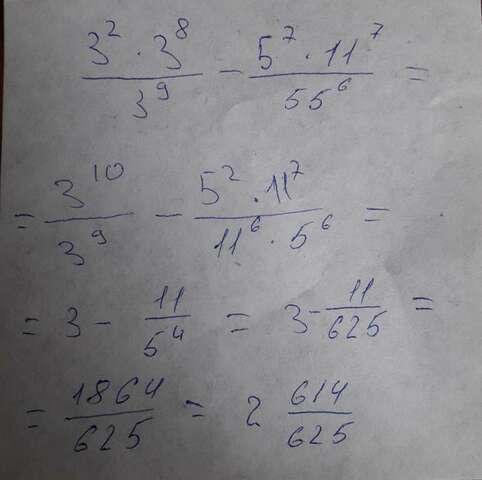 3² · 3⁸ / 3⁹ − 5⁷ · 11⁷ / 55⁶ =
= 3¹⁰ / 3⁹ − 5² · 11⁷ / 11⁶ · 5⁶ =
= 3 − 11 / 5⁴ = 3 − 11 / 625 =
= 1864 / 625 = 2 614 / 625